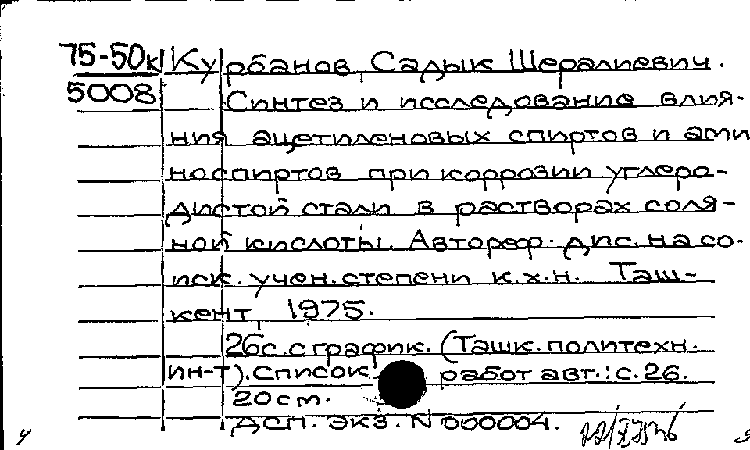 75-50к Курбанов, Садык Шералиевич.
5008 Синтез и исследование влия-
ния ацетиленовых спиртов и ами
носпиртов при коррозии углеро-
дистой стали в растворах соля-
ной кислоты. Автореф. дис. на со-
иск. учен. степени к.х.н. Таш-
кент, 1975.
26 с. с график. (Ташк. политехн.
ин-т). Список работ авт.: с. 26.
20 см.
ДСП. экз. N 000004.